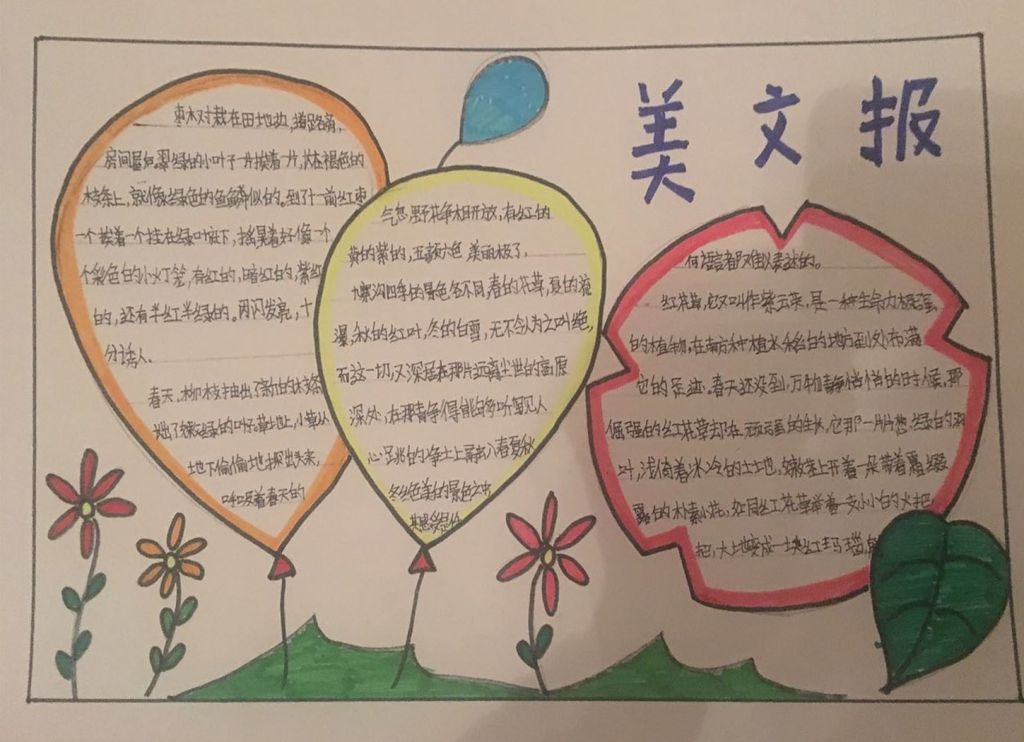 美文报
枣木对栽在田地边,道路旁,
房间屋后,翠绿的小叶子一片挨着一片,从在褐色的
枝条上,就像绿色的鱼鳞似的。到了一前红枣
一个挨着一个挂在绿叶底下,摇晃着好像一个
个彩色的小灯笼,有红的,暗红的,紫红
的,还有半红半绿的。两闪发亮,十
分诱人。
春天,柳枝抽出了新的枝
了嫩绿的叶子草地上,小草从
地下偷偷地探出头来,
呼吸着春天的
气息野花争相开放,有红的
黄的紫的,五颜六色 美丽极了,
寨沟四季的景色各不同,春的花草,夏的流
瀑,秋的红叶,冬的白雪,无不令人为之叫绝,
而这一切又深居在那片远离尘世的高原
深处,在那青净得能够听见人
心跳的净土上融入春夏秋
冬丝色美的景色之中
其感受是
何语言都难以表达的。
红花草,它又叫作紫云英,是一种生命力极强
的植物,在南方种植水稻的地方到处布满
它的足迹。春天还没到,万物静悄悄的时候,那
倔强的红花草却在顽强的生长,它那一片片葱绿的羽
叶,浅倚着冰冷的土地,嫩茎上开着一朵带着露缀
露的朴素小花,如同红花草举着一支小小的火把
把,大地变成一块红玛瑙,